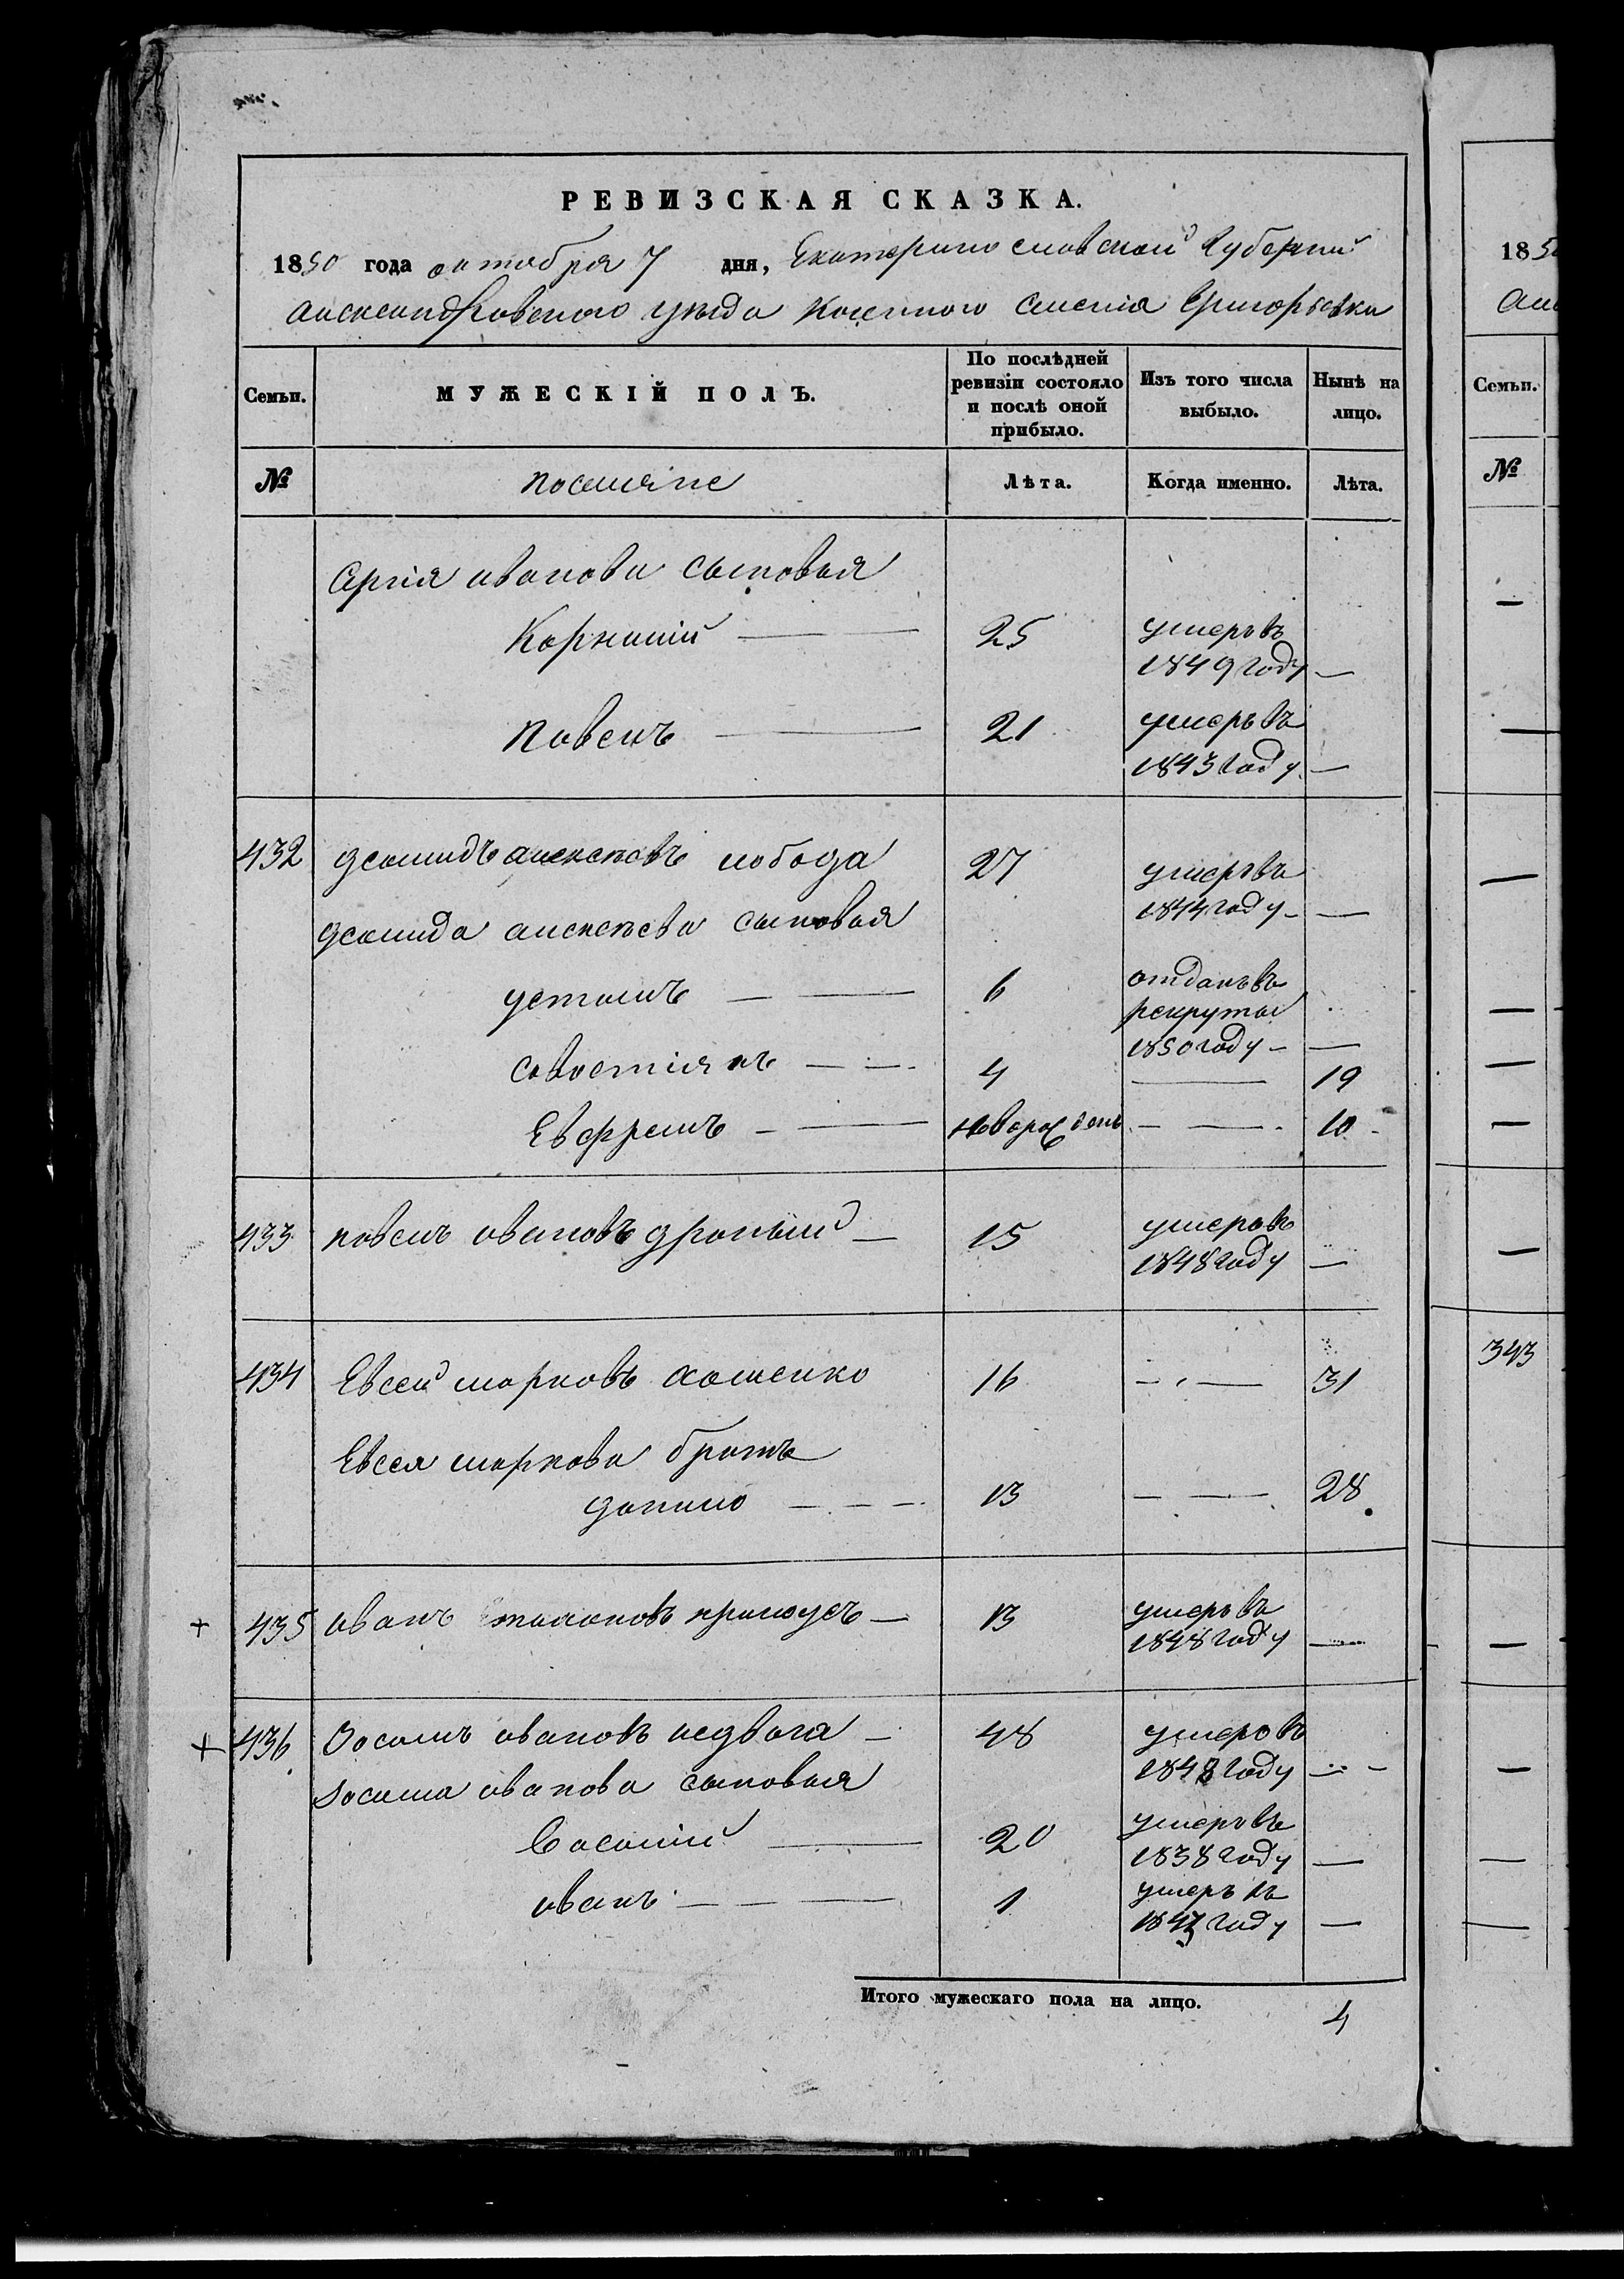 РЕВИЗСКАЯ СКАЗКА.
1850 года октября 7 дня, Екатеринославской Губернии
Александровского уезда Казенного Селения Григорьевка
Семьи. МУЖЕСКІЙ ПОЛЪ. По послѣдней ревизіи состояло и послѣ оной прибыло. Изъ того числа выбыло. Нынѣ на лицо.
№ поселяне Лѣта. Когда именно. Лѣта.
Сергія иванова сыновья
Корнилій — 25 умеръ въ
1849 году —
павелъ — 21 умеръ въ
1843 году —
432 демидъ алексеевъ лобода 27 умеръ въ
1844 году —
демида алексеева сыновья
устимъ — 6 отданъ въ
рекруты
1850 году —
савостіянъ — 4 — 19
Евфремъ — новорожденъ — 10
433 павелъ ивановъ дроный — 15 умеръ въ
1848 году —
434 Евсей марковъ хоменко 16 — 31
Евсея маркова братъ
данило — 13 — 28
+ 435 иванъ кривоусъ — 13 умеръ въ
1848 году —
+ 436 Зосимъ ивановъ недвига — 48 умеръ въ
1848 году —
Зосима иванова сыновья
Василій — 20 умеръ въ
1838 году —
иванъ — 1 умеръ въ
году —
Итого мужескаго пола на лицо. 4
185
Але
Семьи.
№
343